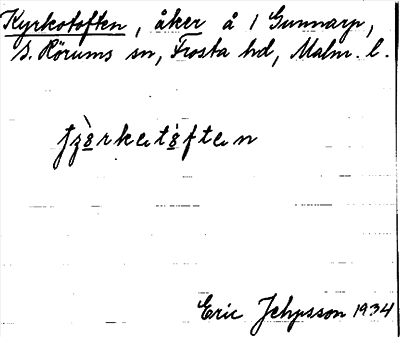 Kyrkotoften, åker å 1 Gunnarp,
S. Rörums sn, Frosta hd, Malm. l.
fzö̀rketȯ̀ften
Eric Jehpsson 1934